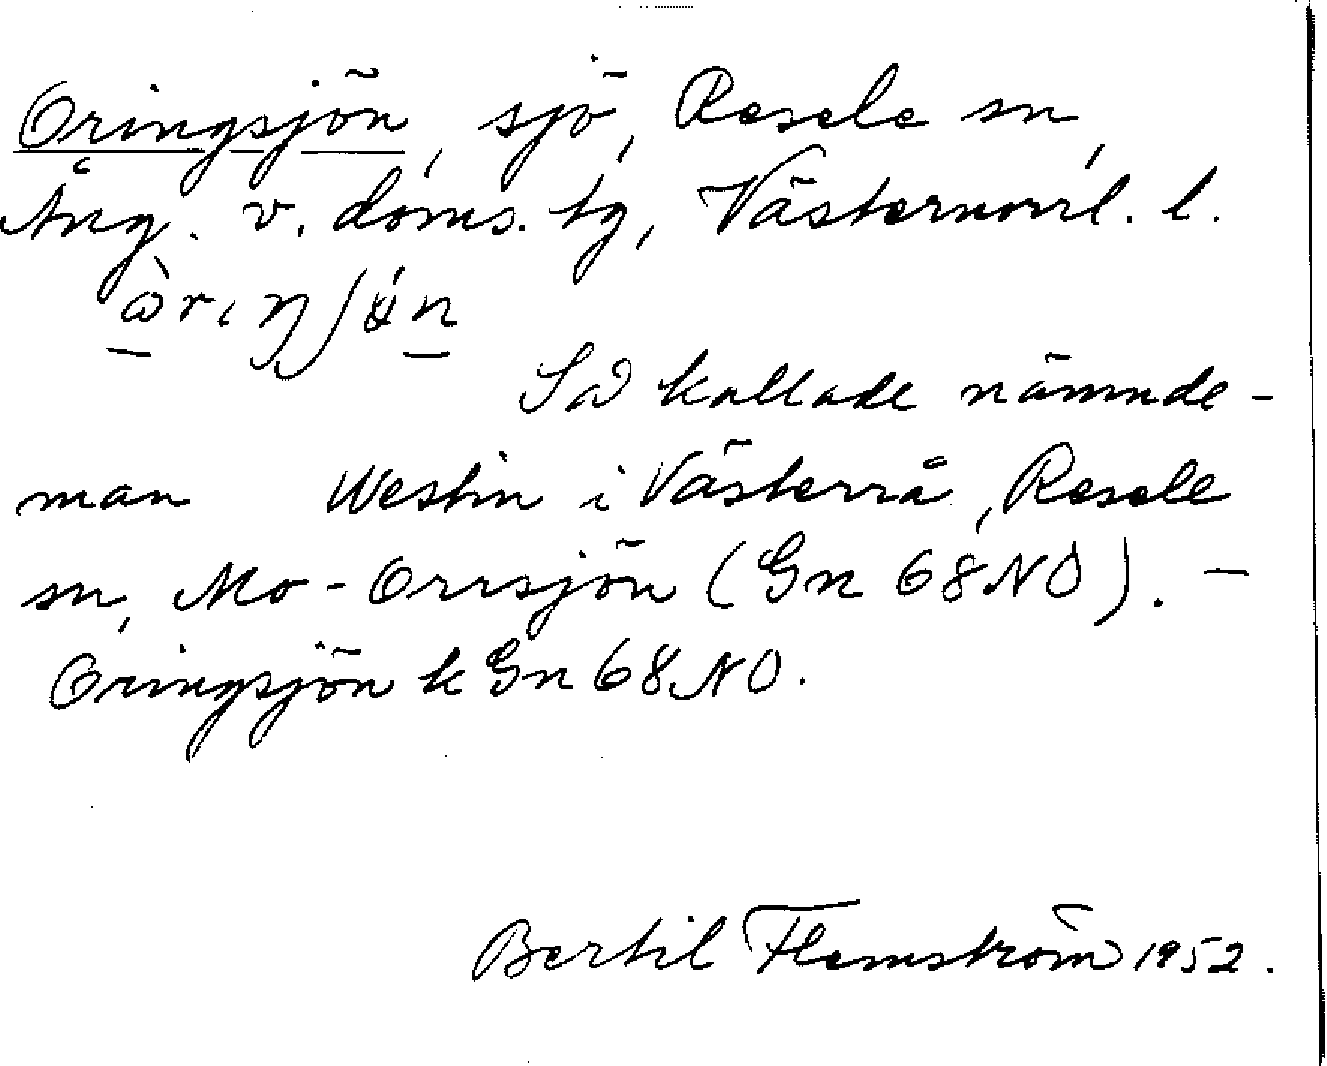 Oringsjön, sjö, Resele sn,
Ång. v. doms. tg, Västernorrl. l.
Så kallade nämnde-
man Westin i Västerrå, Resele
sn, Mo-Orrsjön (Gn 68 NO). —
Oringsjön k Gn 68 NO.
Bertil Flemström 1952.